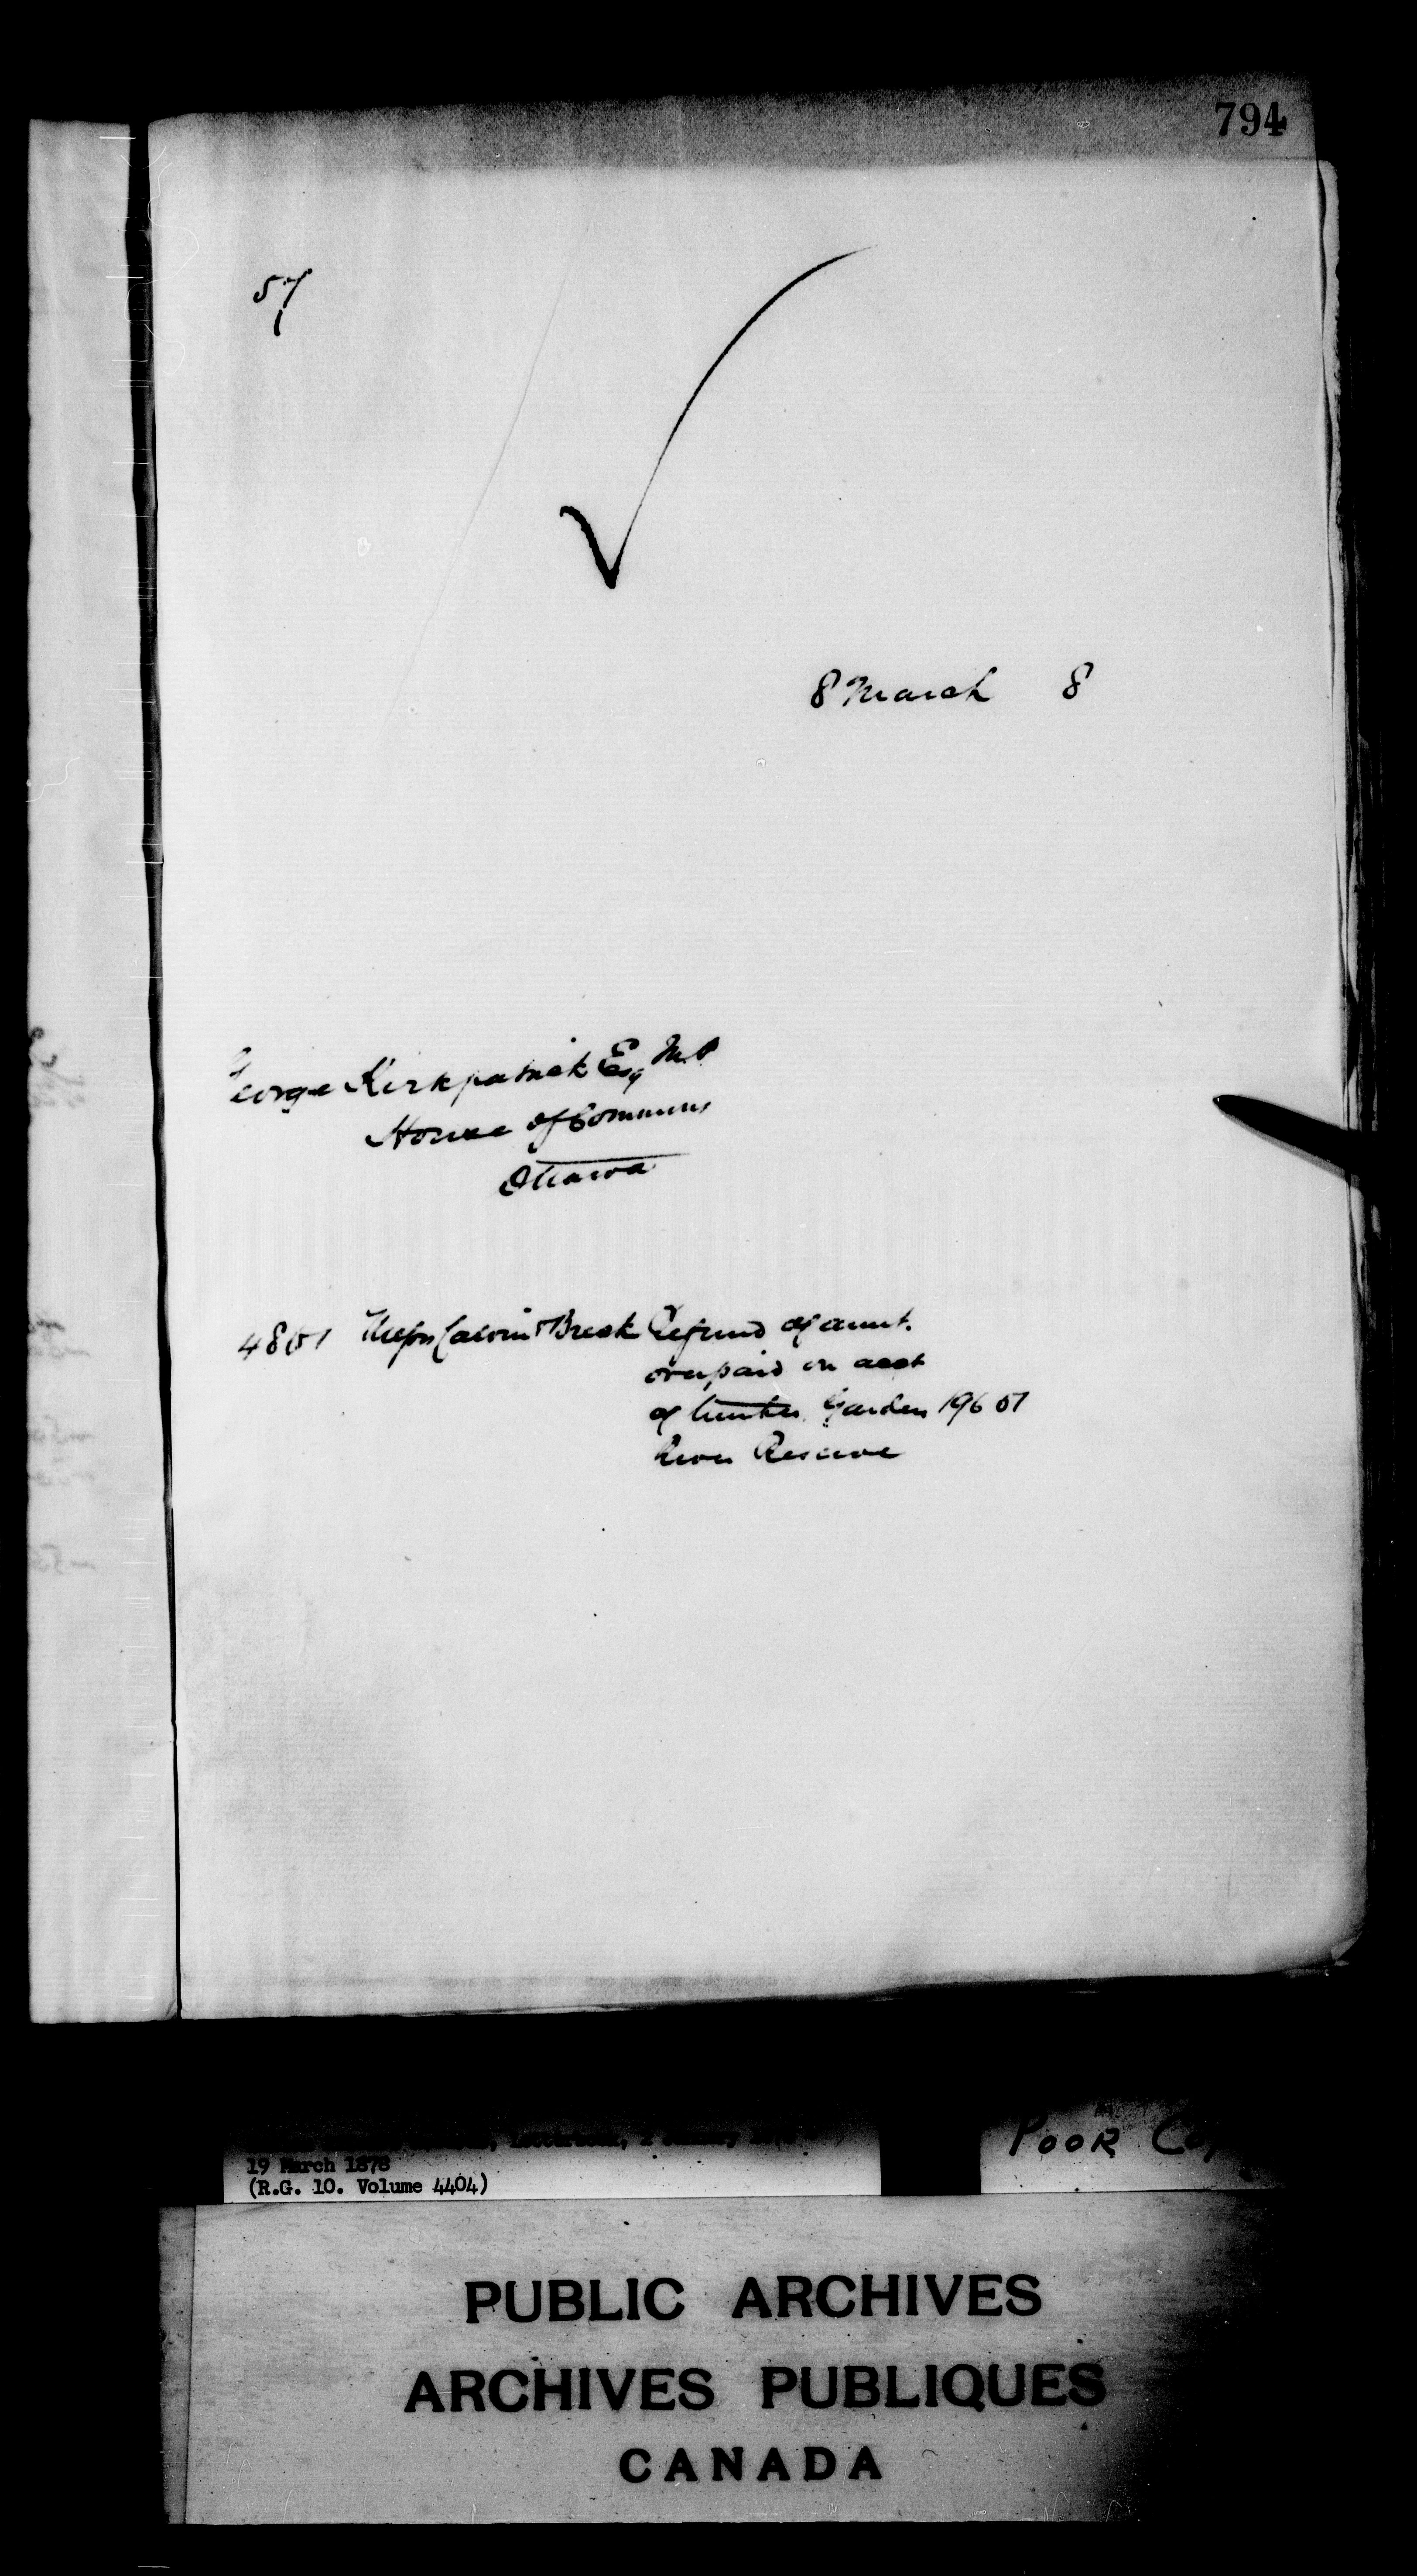 794
57
8 March 8
George Kirkpatrick Esq M.P
House of Commons
Ottawa
4861 Messrs Calvin & Breck Refund of amnt.
overpaid on acct
of timber Garden 196 51
River Reserve
19 March 1878
(R.G. 10. Volume 4404)
POOR
PUBLIC ARCHIVES
ARCHIVES PUBLIQUES
CANADA